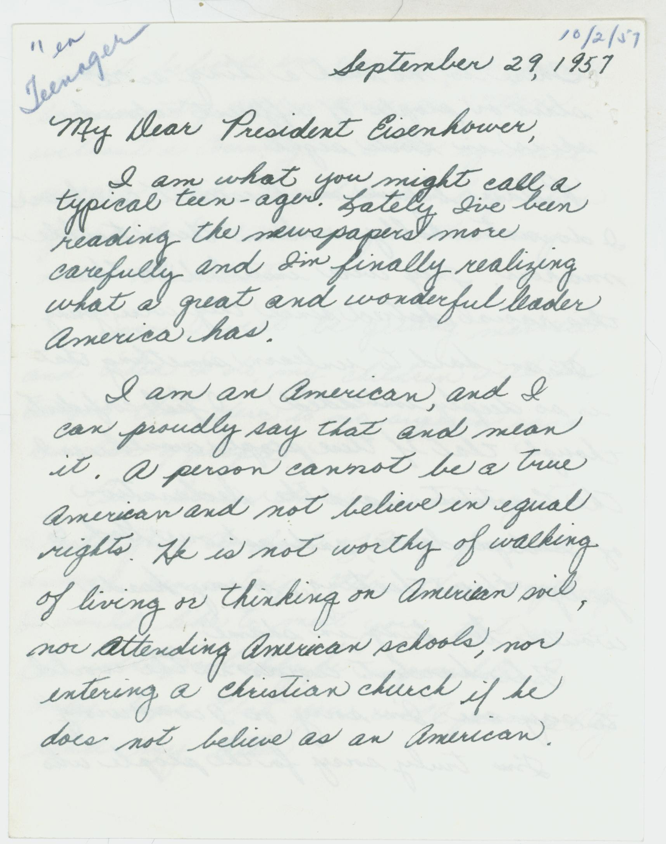 "en
Teenager
10/2/57
September 29, 1957
My Dear President Eisenhower,
I am what you might call a
typical teen-ager. Lately I've been
reading the newspapers more
carefully and I'm finally realizing
what a great and wonderful leader
America has.
I am an American, and I
can proudly say that and mean
it. A person cannot be a true
American and not believe in equal
rights. He is not worthy of walking
of living or thinking on American soil,
nor attending American schools, nor
entering a christian church if he
does not believe as an American.